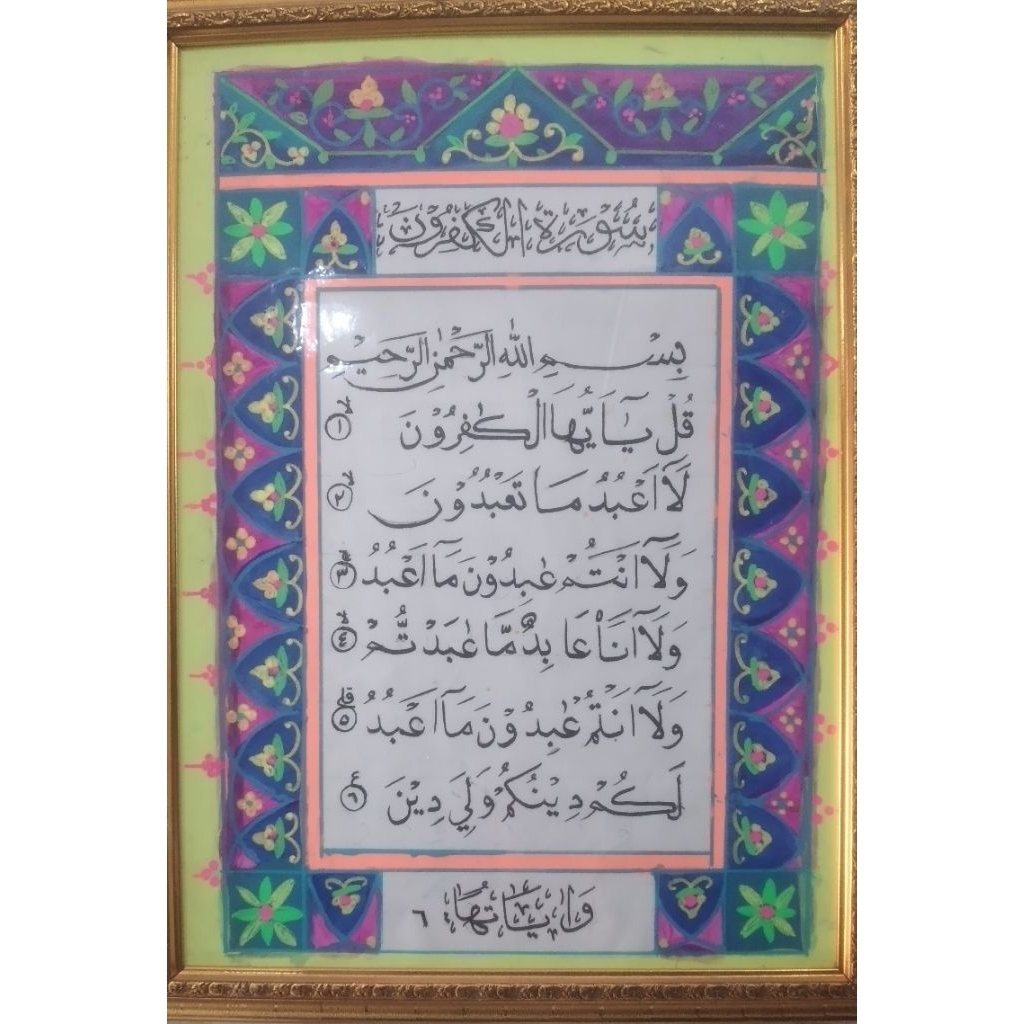 سُوْرَةُ الْكٰفِرُوْنَ
بِسْمِ اللّٰهِ الرَّحْمٰنِ الرَّحِيْمِ
قُلْ يٰٓاَيُّهَا الْكٰفِرُوْنَ ۙ ١
لَآ اَعْبُدُ مَا تَعْبُدُوْنَ ۙ ٢
وَلَآ اَنْتُمْ عٰبِدُوْنَ مَآ اَعْبُدُ ۚ ٣
وَلَآ اَنَا۠ عَابِدٌ مَّا عَبَدْتُّمْ ۙ ٤
وَلَآ اَنْتُمْ عٰبِدُوْنَ مَآ اَعْبُدُ ۗ ٥
لَكُمْ دِيْنُكُمْ وَلِيَ دِيْنِ ࣖ ٦
وَاٰيَاتُهَا ٦